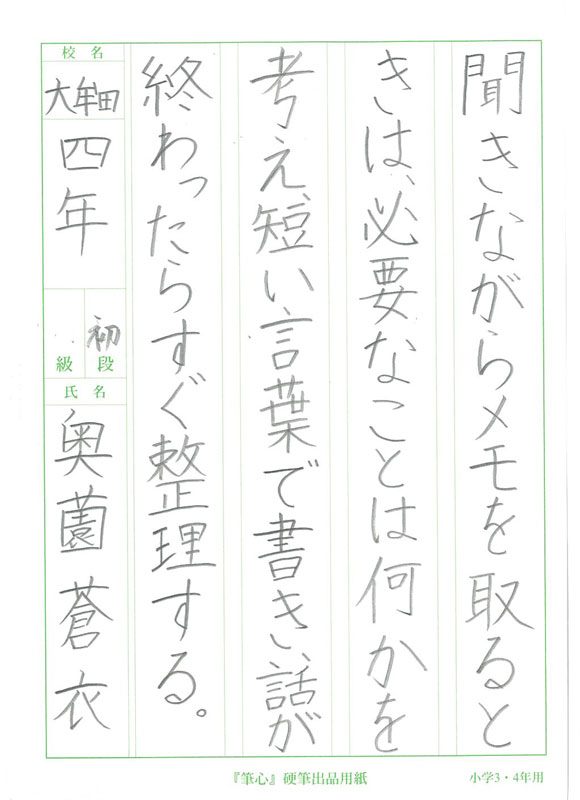 聞きながらメモを取ると
きは、必要なことは何かを
考え、短い言葉で書き、話が
終わったらすぐ整理する。
校名
大牟田
四年
初段
級
氏名
奥薗蒼衣
『筆心』硬筆出品用紙
小学3・4年用